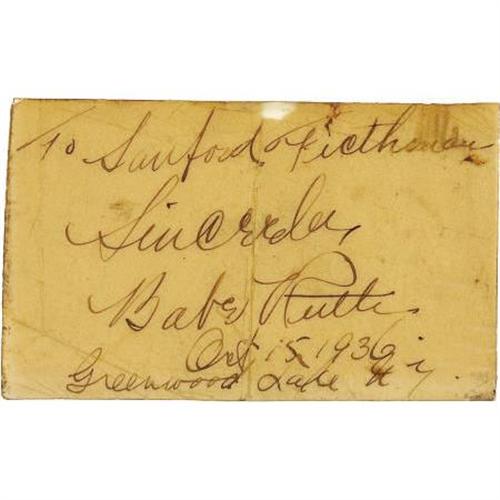 To Sanford Ficthman
Sincerely
Babe Ruth
Oct 15, 1936
Greenwood Lake N.Y.